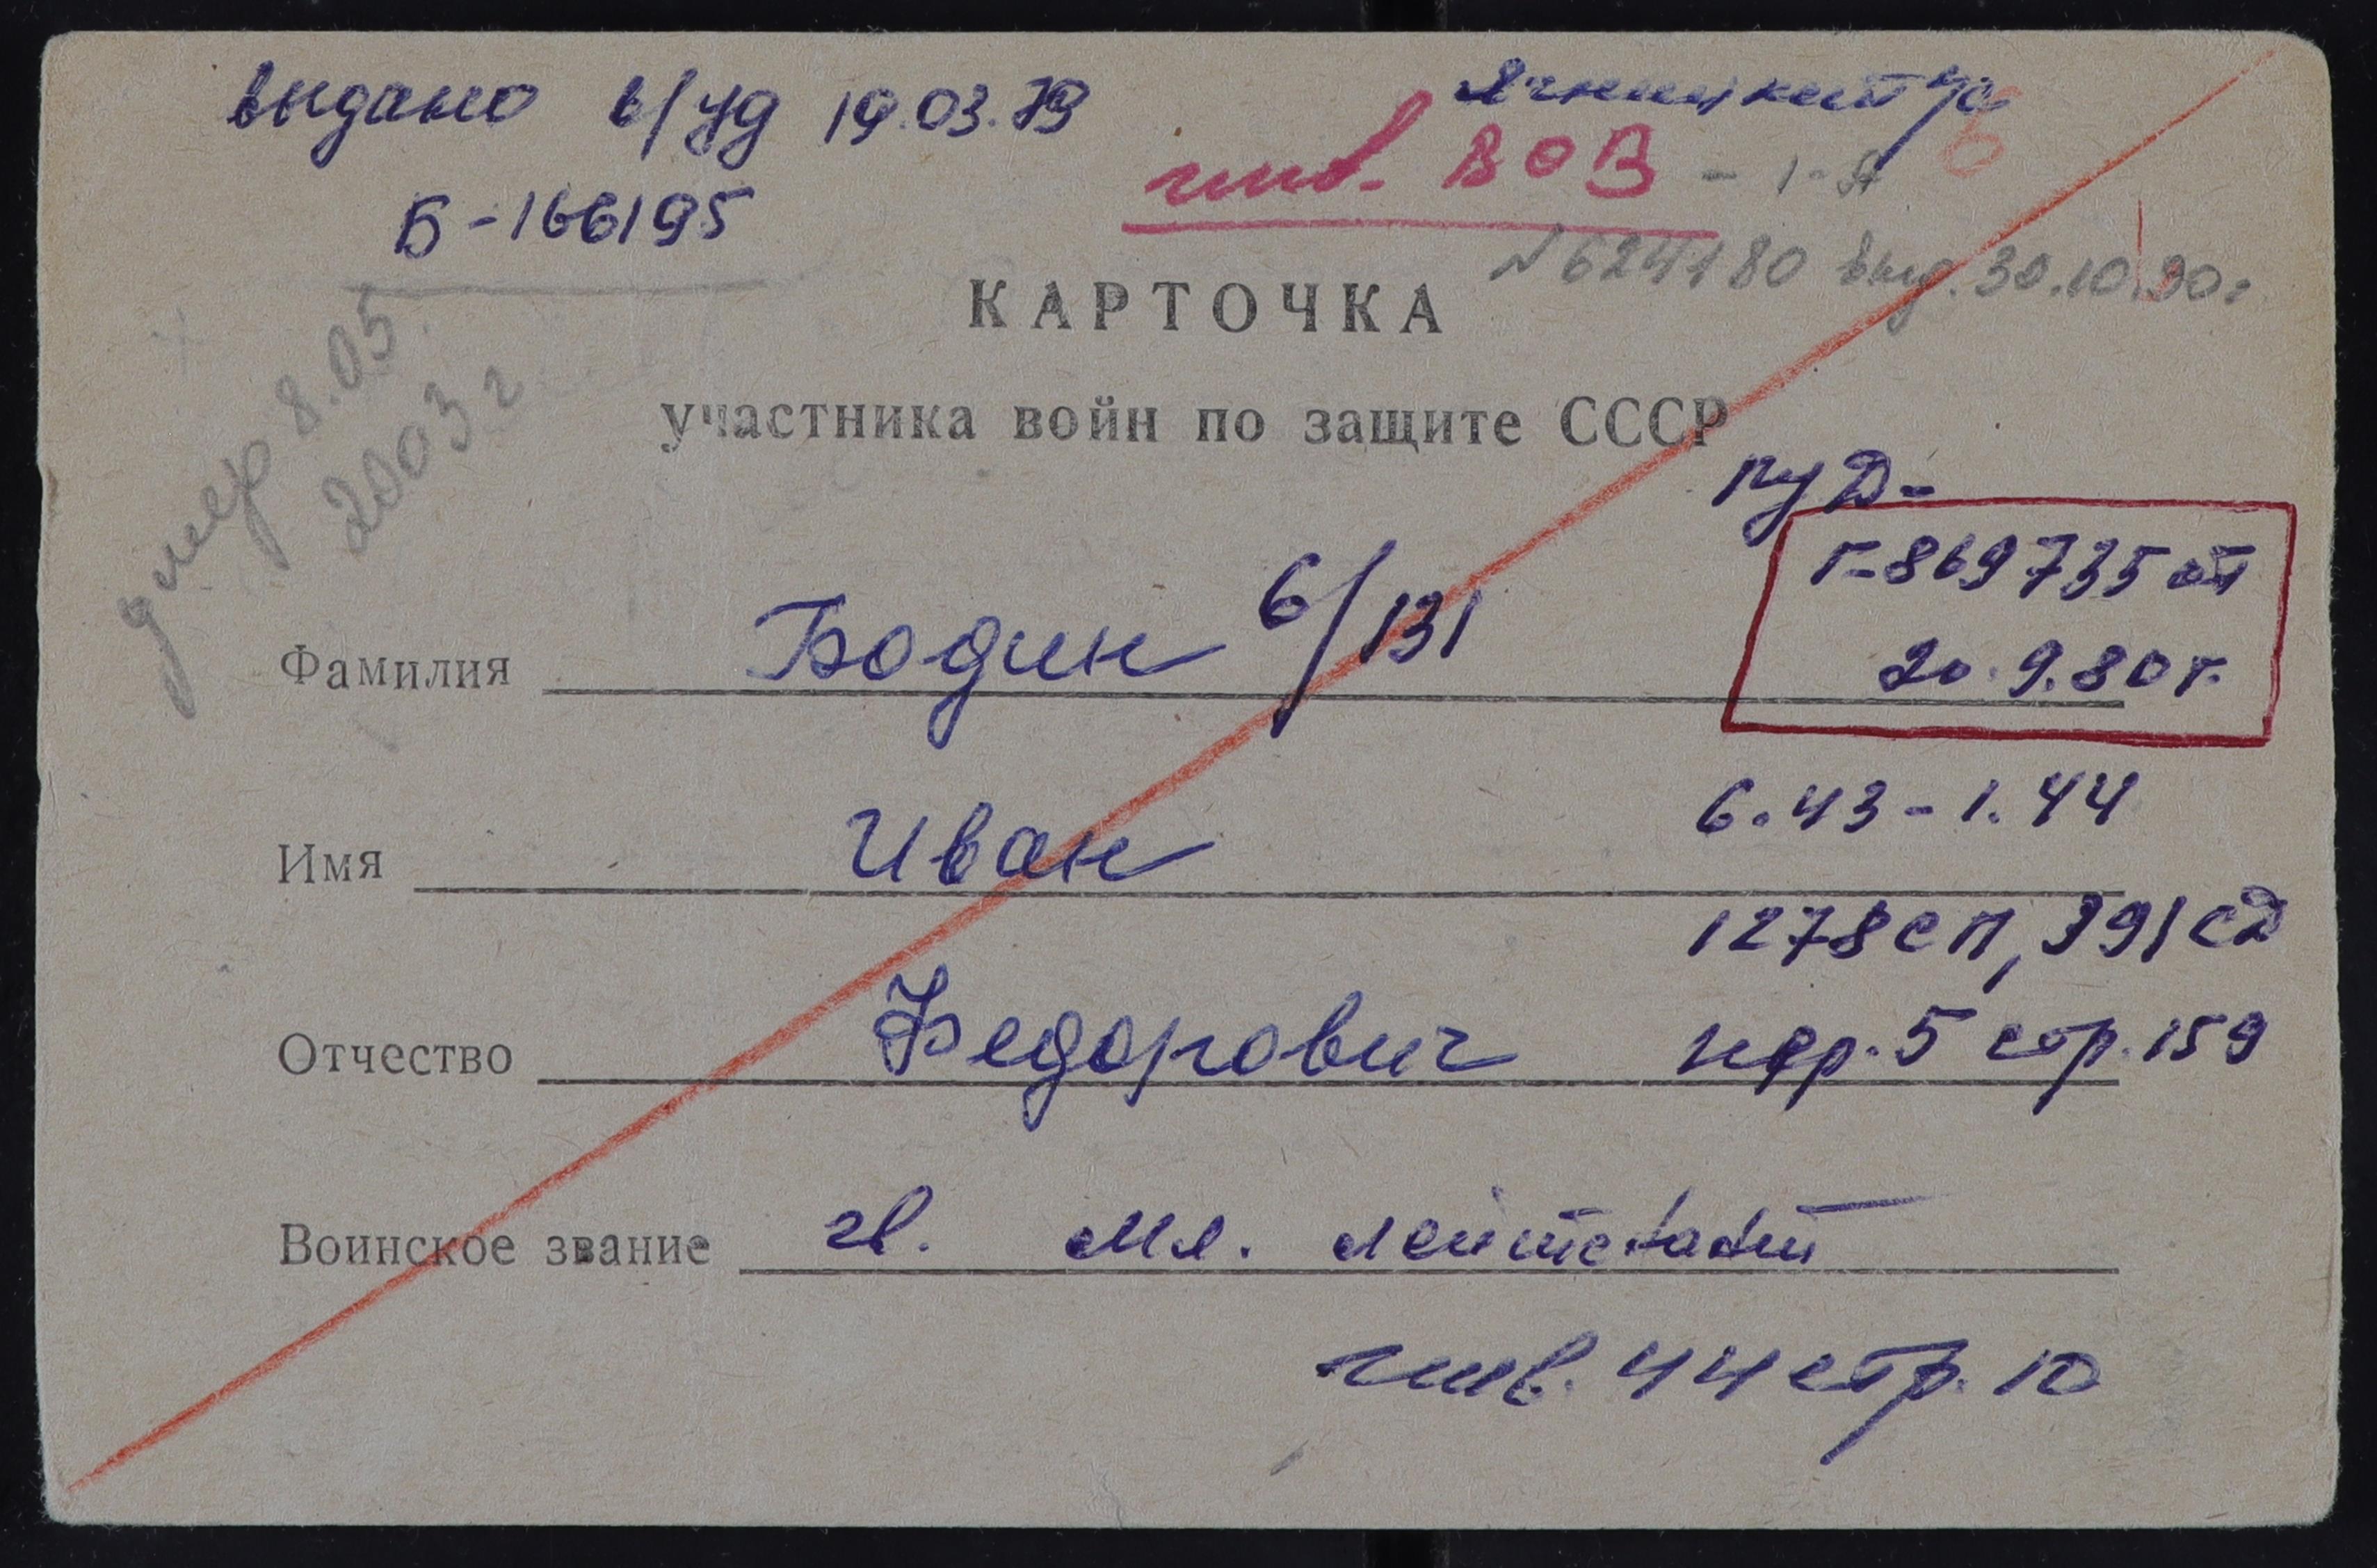 выдано в/уд 19.03.79
Б-166195
с/с
инв. ВОВ - 1-я
6
N 624180 выд. 30.10.90г
КАРТОЧКА
участника войн по защите СССР
умер 8.05.
2003 г
ПУД-
Г-869735 от
20.9.80г.
Фамилия Бодин 6/131
Имя Иван
6.43-1.44
1278 сп, 391 сд
Отчество Федорович
стр. 159
Воинское звание гв. мл. лейтенант
инв. 44 стр. 10